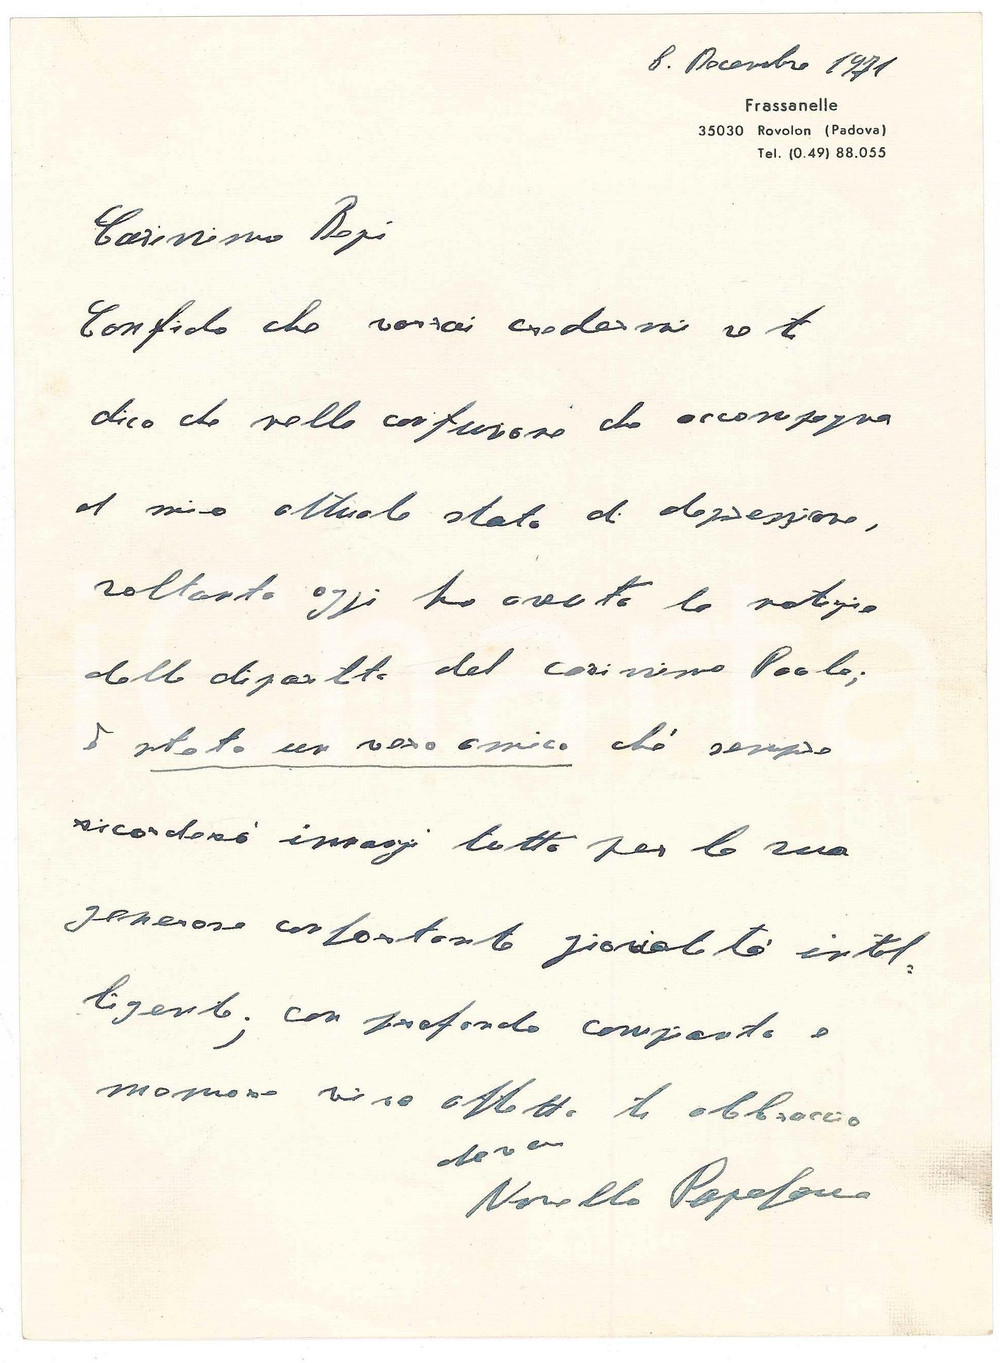 8. Dicembre 1971
Frassanelle
35030 Rovolon (Padova)
Tel. (0.49) 88.055
Carissimo Bepi
Confido che vorrai credermi se ti
dico che nella confusione che accompagna
il mio attuale stato di depressione,
soltanto oggi ho avuto la notizia
della dipartita del carissimo Paolo;
è stato un vero amico che sempre
ricorderò innanzi tutto per la sua
generosa confortante giovialità intel-
ligente; con profondo compianto e
memore vivo affetto ti abbraccio
Novello Papafava